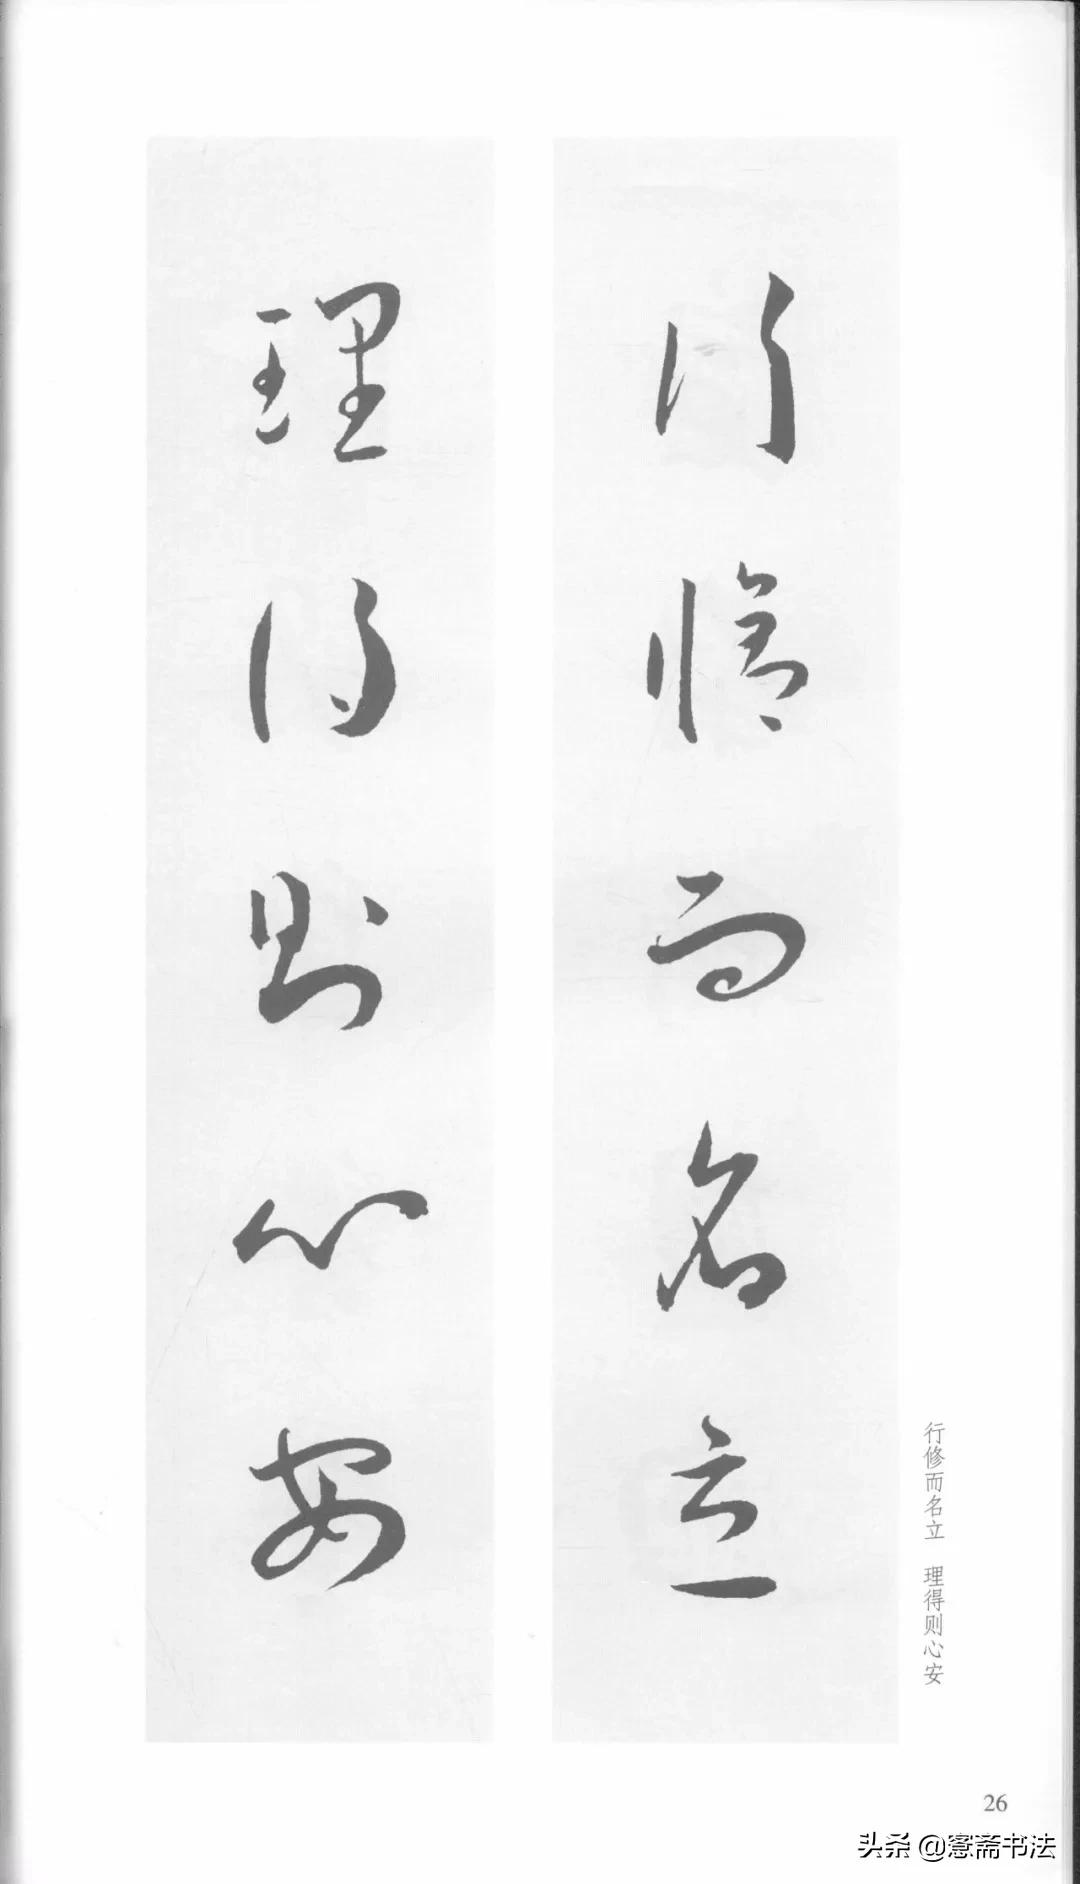 行修而名立
理得则心安
行修而名立 理得则心安
26
头条 @窓斋书法